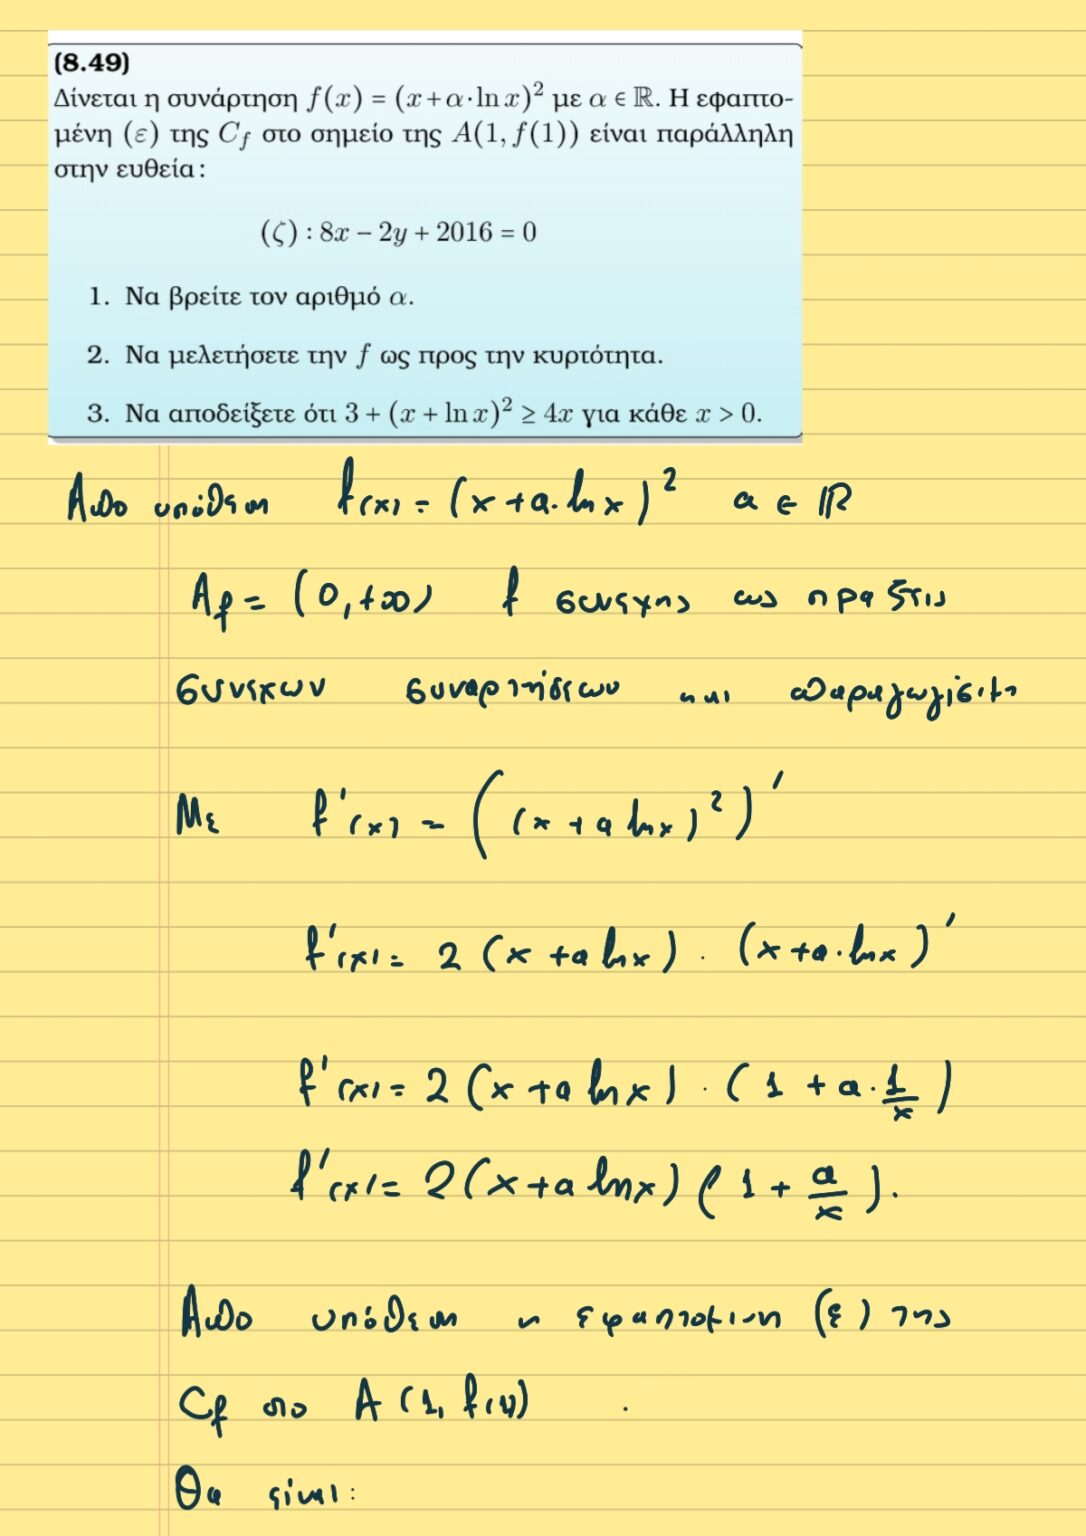 (8.49)
Δίνεται η συνάρτηση f(x) = (x+α·ln x)² με α ∈ ℝ. Η εφαπτο-
μένη (ε) της C_f στο σημείο της A(1, f(1)) είναι παράλληλη
στην ευθεία:
(ζ) : 8x − 2y + 2016 = 0
1. Να βρείτε τον αριθμό α.
2. Να μελετήσετε την f ως προς την κυρτότητα.
3. Να αποδείξετε ότι 3 + (x + ln x)² ≥ 4x για κάθε x > 0.
Από υπόθεση f(x) = (x + a·ln x)² a ∈ ℝ
A_f = (0, +∞) f συνεχης ως πραξεις
συνεχων συναρτήσεων και παραγωγίσιμη
Με f'(x) = ((x + a ln x)²)'
f'(x) = 2 (x + a ln x) · (x + a·ln x)'
f'(x) = 2 (x + a ln x) · (1 + a·1/x)
f'(x) = 2(x + a ln x) (1 + a/x).
Από υπόθεση η εφαπτομενη (ε) της
C_f στο A (1, f(1)) .
Θα είναι: